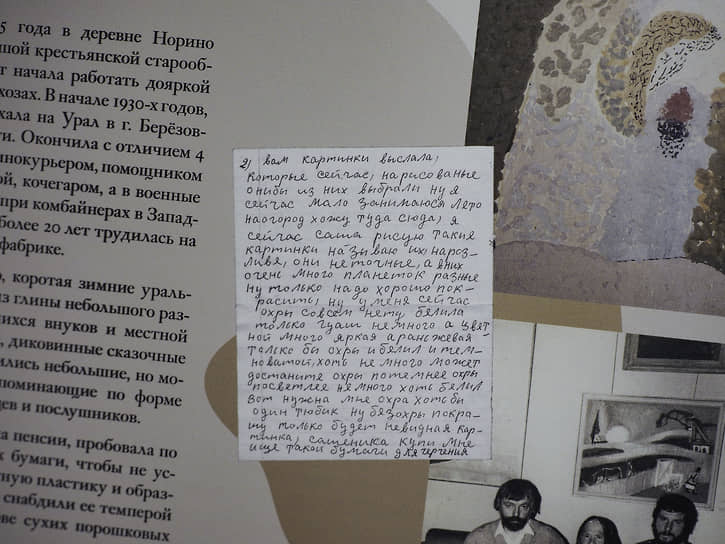 5 года в деревне Норино
шой крестьянской старооб-
т начала работать дояркой
хозах. В начале 1930-х годов,
хала на Урал в г. Берёзов-
ти. Окончила с отличием 4
инокурьером, помощником
ой, кочегаром, а в военные
при комбайнерах в Запад-
более 20 лет трудилась на
фабрике.
о, коротая зимние ураль-
из глины небольшого раз-
щихся внуков и местной
, диковинные сказочные
ились небольшие, но мо-
поминающие по форме
цев и послушников.
на пенсии, пробовала по
х бумаги, чтобы не ус-
тную пластику и образ-
снабдили ее темперой
ове сухих порошковых
2) вам картинки выслала,
которые сейчас, нарисованые
онибы из них выбрали ну я
сейчас мало занимаюся лето
наогород хожу туда сюда, я
сейчас саша рисую такие
картинки называю их, нароз-
ливе, они неточные, а вних
очень много планеток разные
ну только надо хорошо пок-
расить, ну у меня сейчас
охры совсем нету белила
только гуаш немного а цвет
ной много яркая аранжевая
только бы охры ибелил и тем-
новатой, хоть не много может
достаните охры потемнее охры
посветлее немного хоть белил
вот нужна мне охра хотьбы
один тюбик ну безохры покра-
шу только будет невидная кар-
тинка, сашенька купи мне
ище такой бумаги для черчения